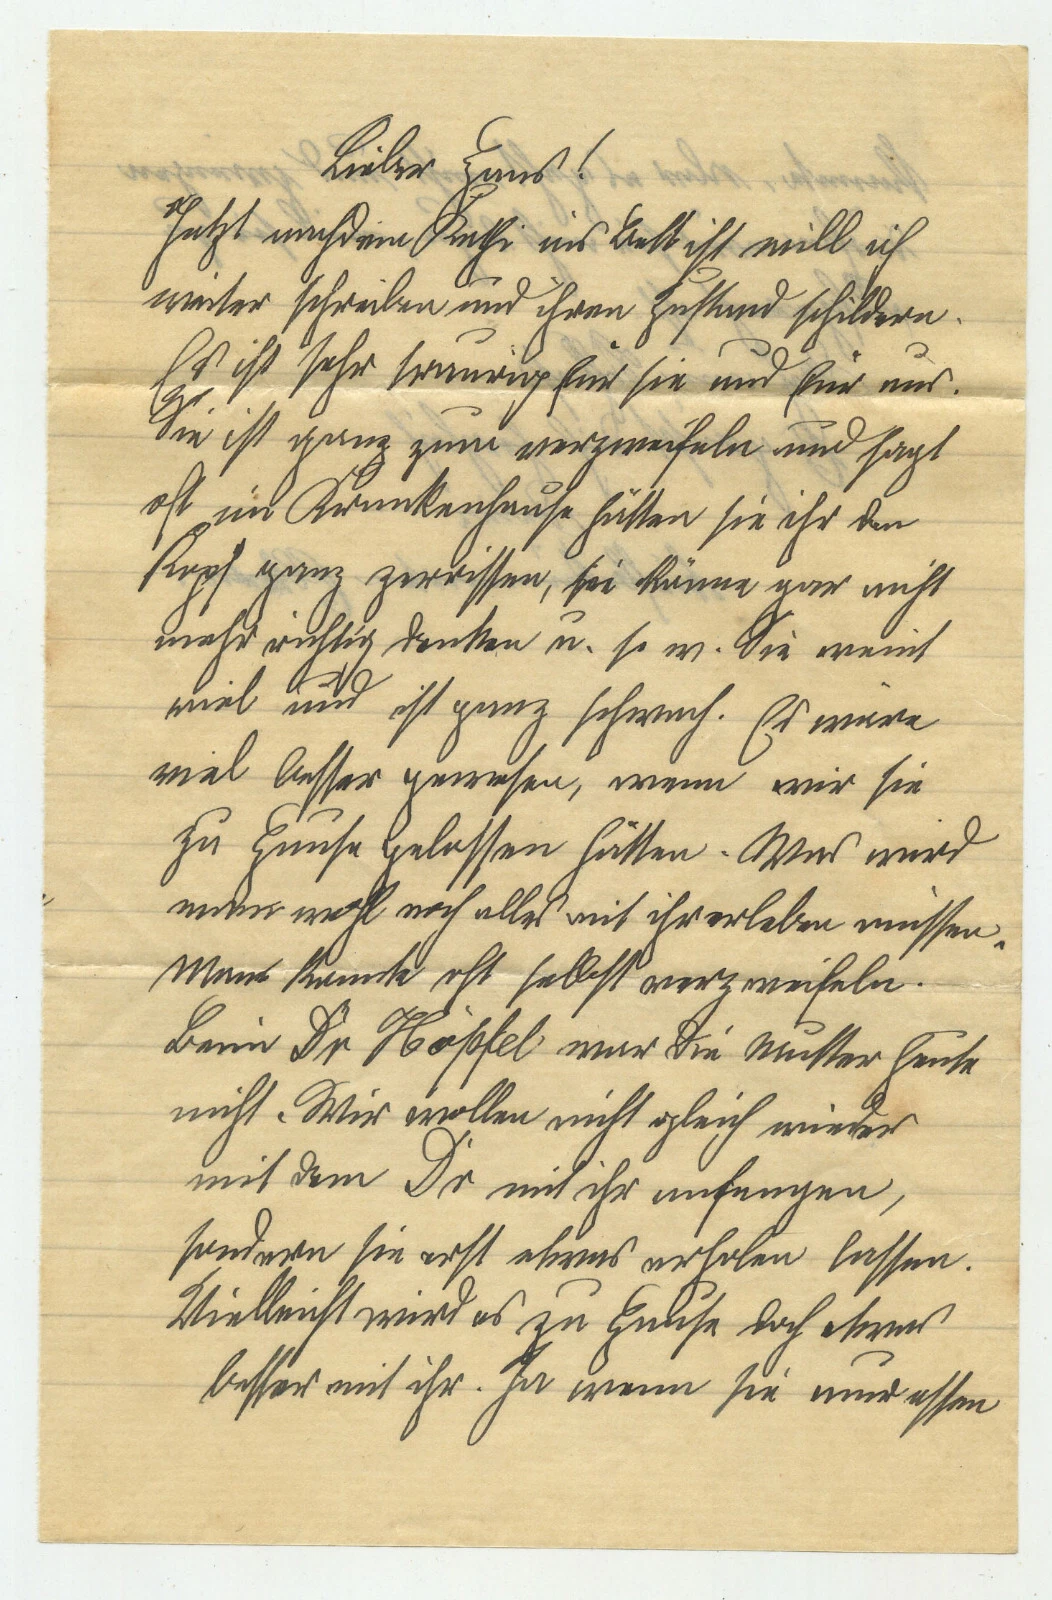 Lieber Hans!
Jetzt nachdem Kathi ins Bett ist will ich
weiter schreiben und ihren Zustand schildern.
Es ist sehr traurig für sie und für uns.
Sie ist ganz zum verzweifeln und sagt
oft im Krankenhause hätten sie ihr den
Kopf ganz zerrissen, sie könne gar nicht
mehr richtig denken u. s. w. Sie weint
viel und ist ganz schwach. Es wäre
viel besser gewesen, wenn wir sie
zu Hause gelassen hätten. Was wird
man wohl noch alles mit ihr erleben müssen.
Man kannte oft selbst verzweifeln.
Beim Dr Höpfel war die Mutter heute
nicht. Wir wollen nicht gleich wieder
mit dem Dr mit ihr anfangen,
sondern sie erst etwas erholen lassen.
Vielleicht wird es zu Hause doch etwas
besser mit ihr. Ja wenn sie nur essen